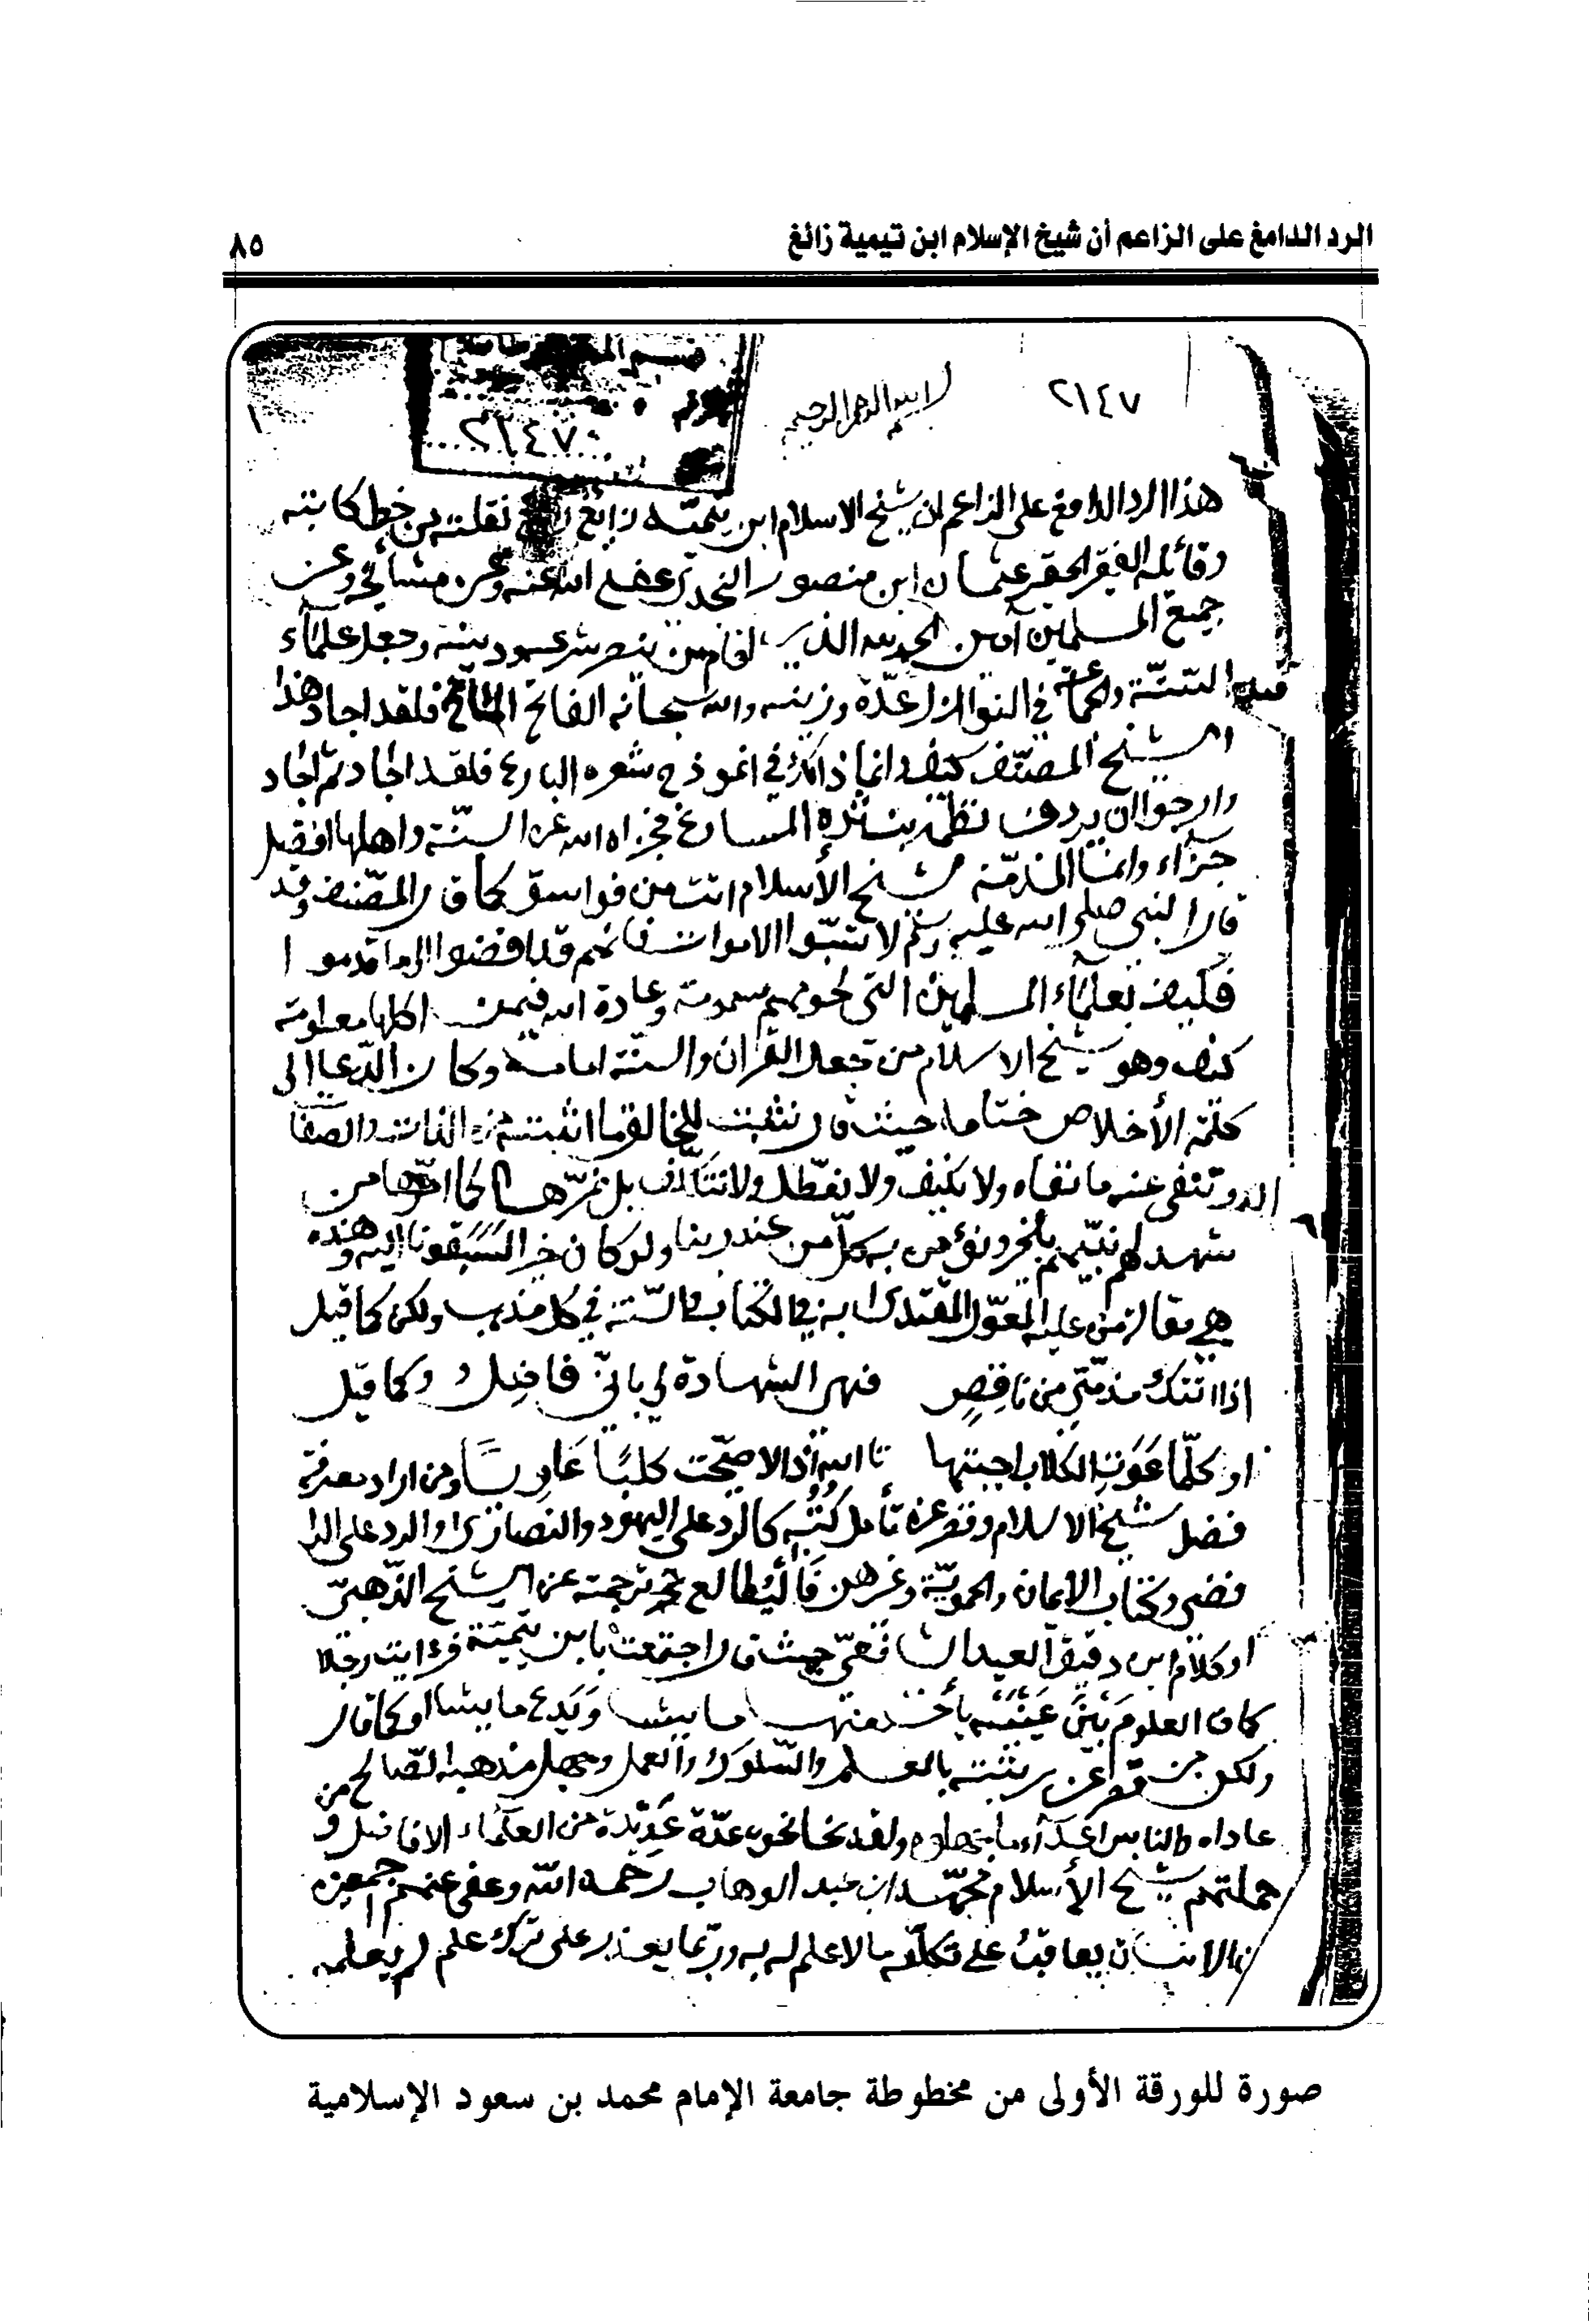 الرد الدامغ على الزاعم أن شيخ الإسلام ابن تيمية زائغ
٨٥
٢١٤٧
بسم الله الرحمن الرحيم
٢١٤٧
١
هذا الرد الدامغ على الزاعم ان شيخ الاسلام ابن تيميّه زايغ نقلته من خط كاتبه
وقائله الفقير الحقير عثمان ابن منصور النجدي عفى الله عنه وعن مشائخه وعن
جميع المسلمين آمين الحمد لله الذي اقام من ينصر شرعه ودينه وجعل علمآء
السنّة والجماعة في النوازل عدّة وزينه والله سبحانه الفاتح المانح فلقد اجاد هذا
الشيخ المصنّف كيف وانما ذالك في انموذج شعره البارع فلقد اجاد ثم اجاد
وارجوا ان يردف نظمه بنثره فجزاه الله عن السنّة واهلها افضل
جزآء وانما المذمّة شيخ الأسلام اتت من فواسق كما قال المصّنف وقد
قال النبي صلى الله عليه وسلم لا تسبّوا الاموات فانهم قد افضوا الى ما قدموا
فكيف بعلمآء المسلمين التي لحومهم مسمومة وعادة الله فيمن اكلها معلومة
كيف وهو شيخ الاسلام من جعل القرآن والسنّة امامه وكان الدّعا الى
كلمة الأخلاص ختامه حيث قال نثبت للخالق ما اثبته من الذات والصفا
وننفي عنه ما نفاه ولا نكيّف ولا نعطّل ولا نتأوّل بل نمرّها كما امرّها من
شهد لهم نبيّهم بالخير ونؤمن به كلّ من عند ربنا ولو كان خيرا لسبقونا اليه وهذه
هي مقالة من عليه المعوّل المقتدى به في الكتاب والسّنة في كل مذهب ولكن كما قيل
اذا اتتك مذمّتي من ناقِصٍ فهي الشهادة لي بانّي فاضل وكما قيل
او كلّما عَوَتِ الكلاب اجبتها تالله اذا لاصبحت كلبًا عَاوِيًا ومن اراد معرفة
فضل شيخ الاسلام تأمل كُتُبِه كالرد على اليهود والنصارى والرد على الرا
فضي وكتاب الايمان والحمويّة وغيرهن فَالْيُطالع ترجمته عن الشيخ الذّهبيّ
او كلام ابن دقيق العيد الشافعيّ حيث قال اجتمعتُ بابن تيميّة فرايت رجلا
كان العلوم بَيْنَ عَيْنَيْه يأخذ منها ما يشا وَيَدع ما يشا او كما قال
ولكن من رتبته بالعلم والسّلوك والعمل وجهل مذهبه الصّالح من
عاداه والناس اعدآء ما جهلوه ولقد نحا نحوه عدّة عَدِيدة من العلمآء الافاضل و
جملتهم شيخ الأسلام محمّد ابن عبد الوهاب رحمه الله وعفى عنهم اجمعين
فالانسان يعاقبُ على تكلّفه ما لا علم له به وربّما يعذر على ترك علم لم يعلمه
صورة للورقة الأولى من مخطوطة جامعة الإمام محمد بن سعود الإسلامية